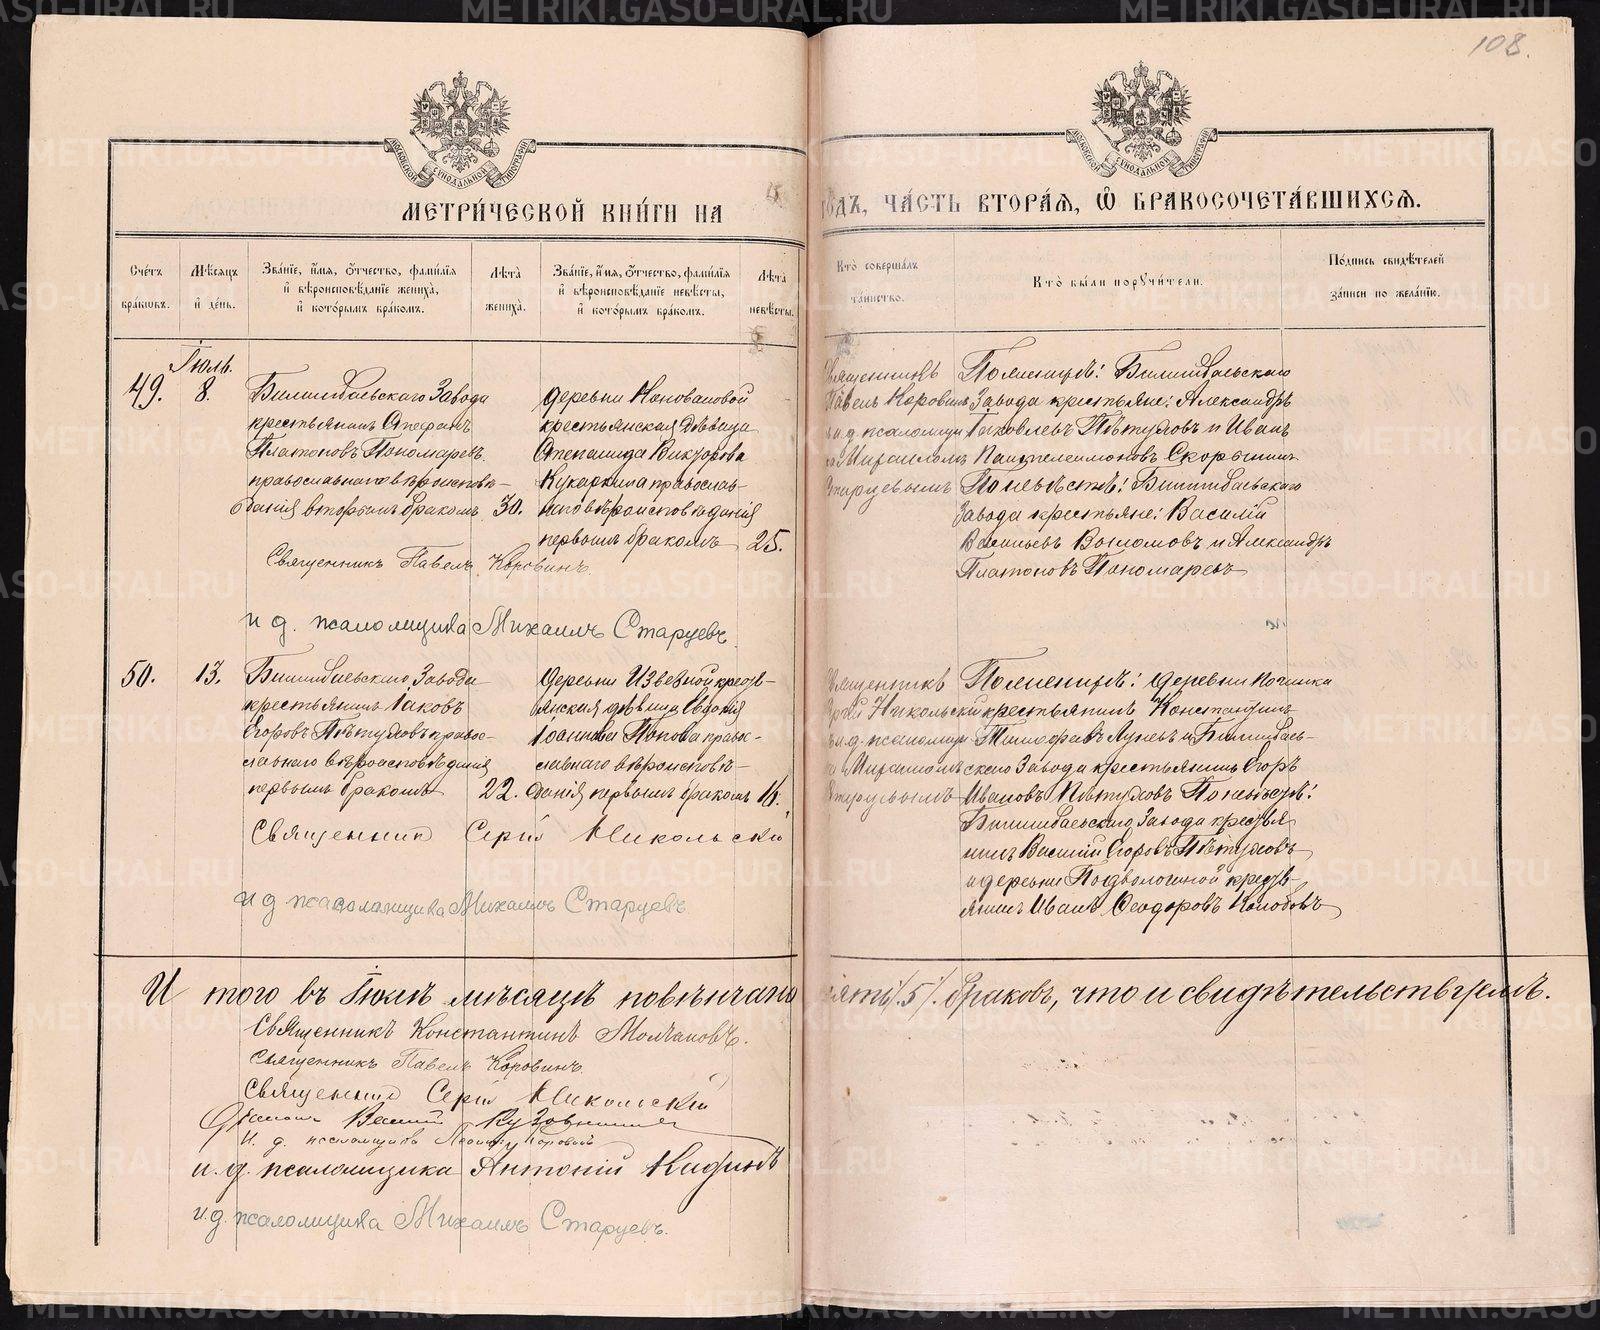 108.
МОСКОВСКОЙ СѴНОДАЛЬНОЙ ТИПОГРАФІИ
МОСКОВСКОЙ СѴНОДАЛЬНОЙ ТИПОГРАФІИ
МЕТРИ́ЧЕСКОЙ КНИ́ГИ НА
ГОДЪ, ЧА́СТЬ ВТОРА́Я, Ѽ БРАКОСОЧЕТА́ВШИХСЯ.
Сче́тъ бра́кѡвъ.
Мѣ́сяцъ и҆ де́нь.
Зва́нїе, и҆́мя, ѻ҆́тчество, фами́лїя и҆ вѣроисповѣ́данїе жениха̀, и҆ кото́рымъ бра́комъ.
Лѣ́та жениха̀.
Зва́нїе, и҆́мя, ѻ҆́тчество, фами́лїя и҆ вѣроисповѣ́данїе невѣ́сты, и҆ кото́рымъ бра́комъ.
Лѣ́та невѣ́сты.
Кто̀ соверша́лъ та́инство.
Кто̀ бы́ли порꙋчи́тели.
По́дпись свидѣ́телей за́писи по жела́нїю.
Іюль.
49.
8.
Билимбаевскаго Завода
крестьянинъ Стефанъ
Платоновъ Пономаревъ
православнаго вѣроисповѣ-
данія вторымъ бракомъ
30.
деревни Коноваловой
крестьянская дѣвица
Степанида Викторова
Кукаркина православ-
наго вѣроисповѣданія
первымъ бракомъ
25.
Священникъ
Павелъ Коровинъ
и.д. псаломщи
ка Михаиломъ
Старцевымъ
По женихѣ: Билимбаевскаго
Завода крестьяне: Александръ
Яковлевъ Пѣтуховъ и Иванъ
Пантелеимоновъ Скорынинъ
По невѣстѣ: Билимбаевскаго
Завода крестьяне: Василій
Васильевъ и Александръ
Платоновъ Пономаревъ
Священникъ Павелъ Коровинъ
и д. псаломщика Михаилъ Старцевъ.
50.
13.
Билимбаевскаго Завода
крестьянинъ Іаковъ
Егоровъ Пѣтуховъ правос-
лавнаго вѣроисповѣданія
первымъ бракомъ
22.
деревни Извезной крестъ-
янская дѣвица Евдокія
Іоаннова Попова правос-
лавнаго вѣроисповѣ-
данія первымъ бракомъ
16.
Священникъ
Сергій Никольскій
и.д. псаломщи
ка Михаиломъ
Старцевымъ
По женихѣ: деревни Починка
крестьянинъ Константинъ
Тимофеевъ и Билимбаев-
скаго Завода крестьянинъ Егоръ
Ивановъ Пѣтуховъ По невѣстѣ:
Билимбаевскаго Завода крестья
нинъ Василій Егоровъ Пѣтуховъ
и деревни Подволошной кресть-
янинъ Иванъ Ѳеодоровъ Колобовъ
Священник Сергій Никольскій
и д псаломщика Михаилъ Старцевъ
Итого въ Іюлѣ мѣсяцѣ повѣнчано пять /.5/. браковъ, что и свидѣтельствуемъ.
Священникъ Константинъ Молчановъ.
Священникъ Павелъ Коровинъ
Священник Сергій Никольскій
Василій
и. д. псаломщика
и. д. псаломщика Антоній
и.д. псаломщика Михаилъ Старцевъ.
METRIKI.GASO-URAL.RU